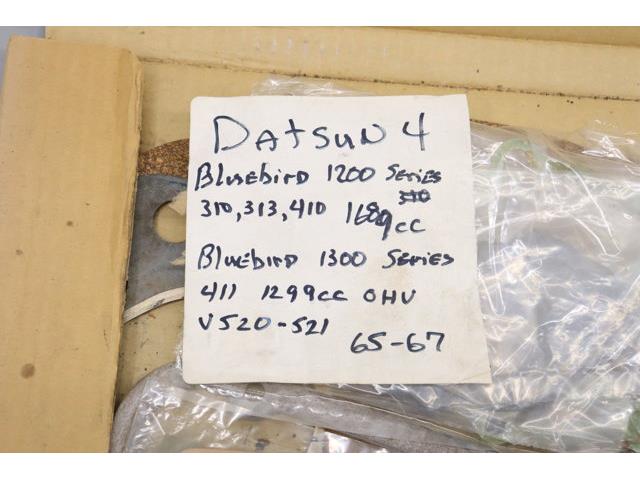 DATSUN 4
BLUEBIRD 1200 SERIES
310, 313, 410 1689cc
BLUEBIRD 1300 SERIES
411 1299cc OHV
V520-521
65-67